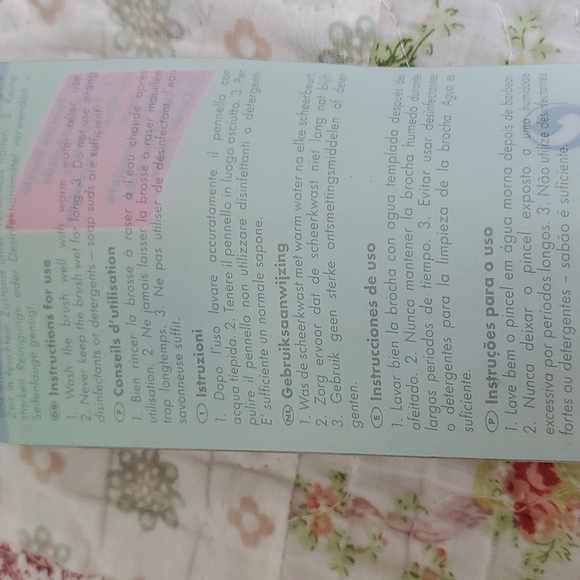 Seifenlauge genügt
GB Instructions for use
1. Wash the brush well with warm water after use.
2. Never keep the brush wet for long. 3. Do not use strong
disinfectants or detergents – soap suds are sufficient.
F Conseils d'utilisation
1. Bien rincer la brosse à raser à l'eau chaude après
utilisation. 2. Ne jamais laisser la brosse à raser mouillée
trop longtemps. 3. Ne pas utiliser de désinfectant, l'eau
savonneuse suffit.
I Istruzioni
1. Dopo l'uso lavare accuratamente il pennello con
acqua tiepida. 2. Tenere il pennello in luogo asciutto. 3. Per
pulire il pennello non utilizzare disinfettanti o detergenti.
E' sufficiente un normale sapone.
NL Gebruiksaanwijzing
1. Was de scheerkwast met warm water na elke scheerbeurt.
2. Zorg ervoor dat de scheerkwast niet lang nat blijft.
3. Gebruik geen sterke ontsmettingsmiddelen of deter-
genten.
E Instrucciones de uso
1. Lavar bien la brocha con agua templada después del
afeitado. 2. Nunca mantener la brocha humeda durante
largos períodos de tiempo. 3. Evitar usar desinfectantes
o detergentes para la limpieza de la brocha. Agua es
suficiente.
P Instruções para o uso
1. Lave bem o pincel em água morna depois de barbear.
2. Nunca deixar o pincel exposto a uma humidade
excessiva por períodos longos. 3. Não utilize desinfectantes
fortes ou detergentes – sabão é suficiente.